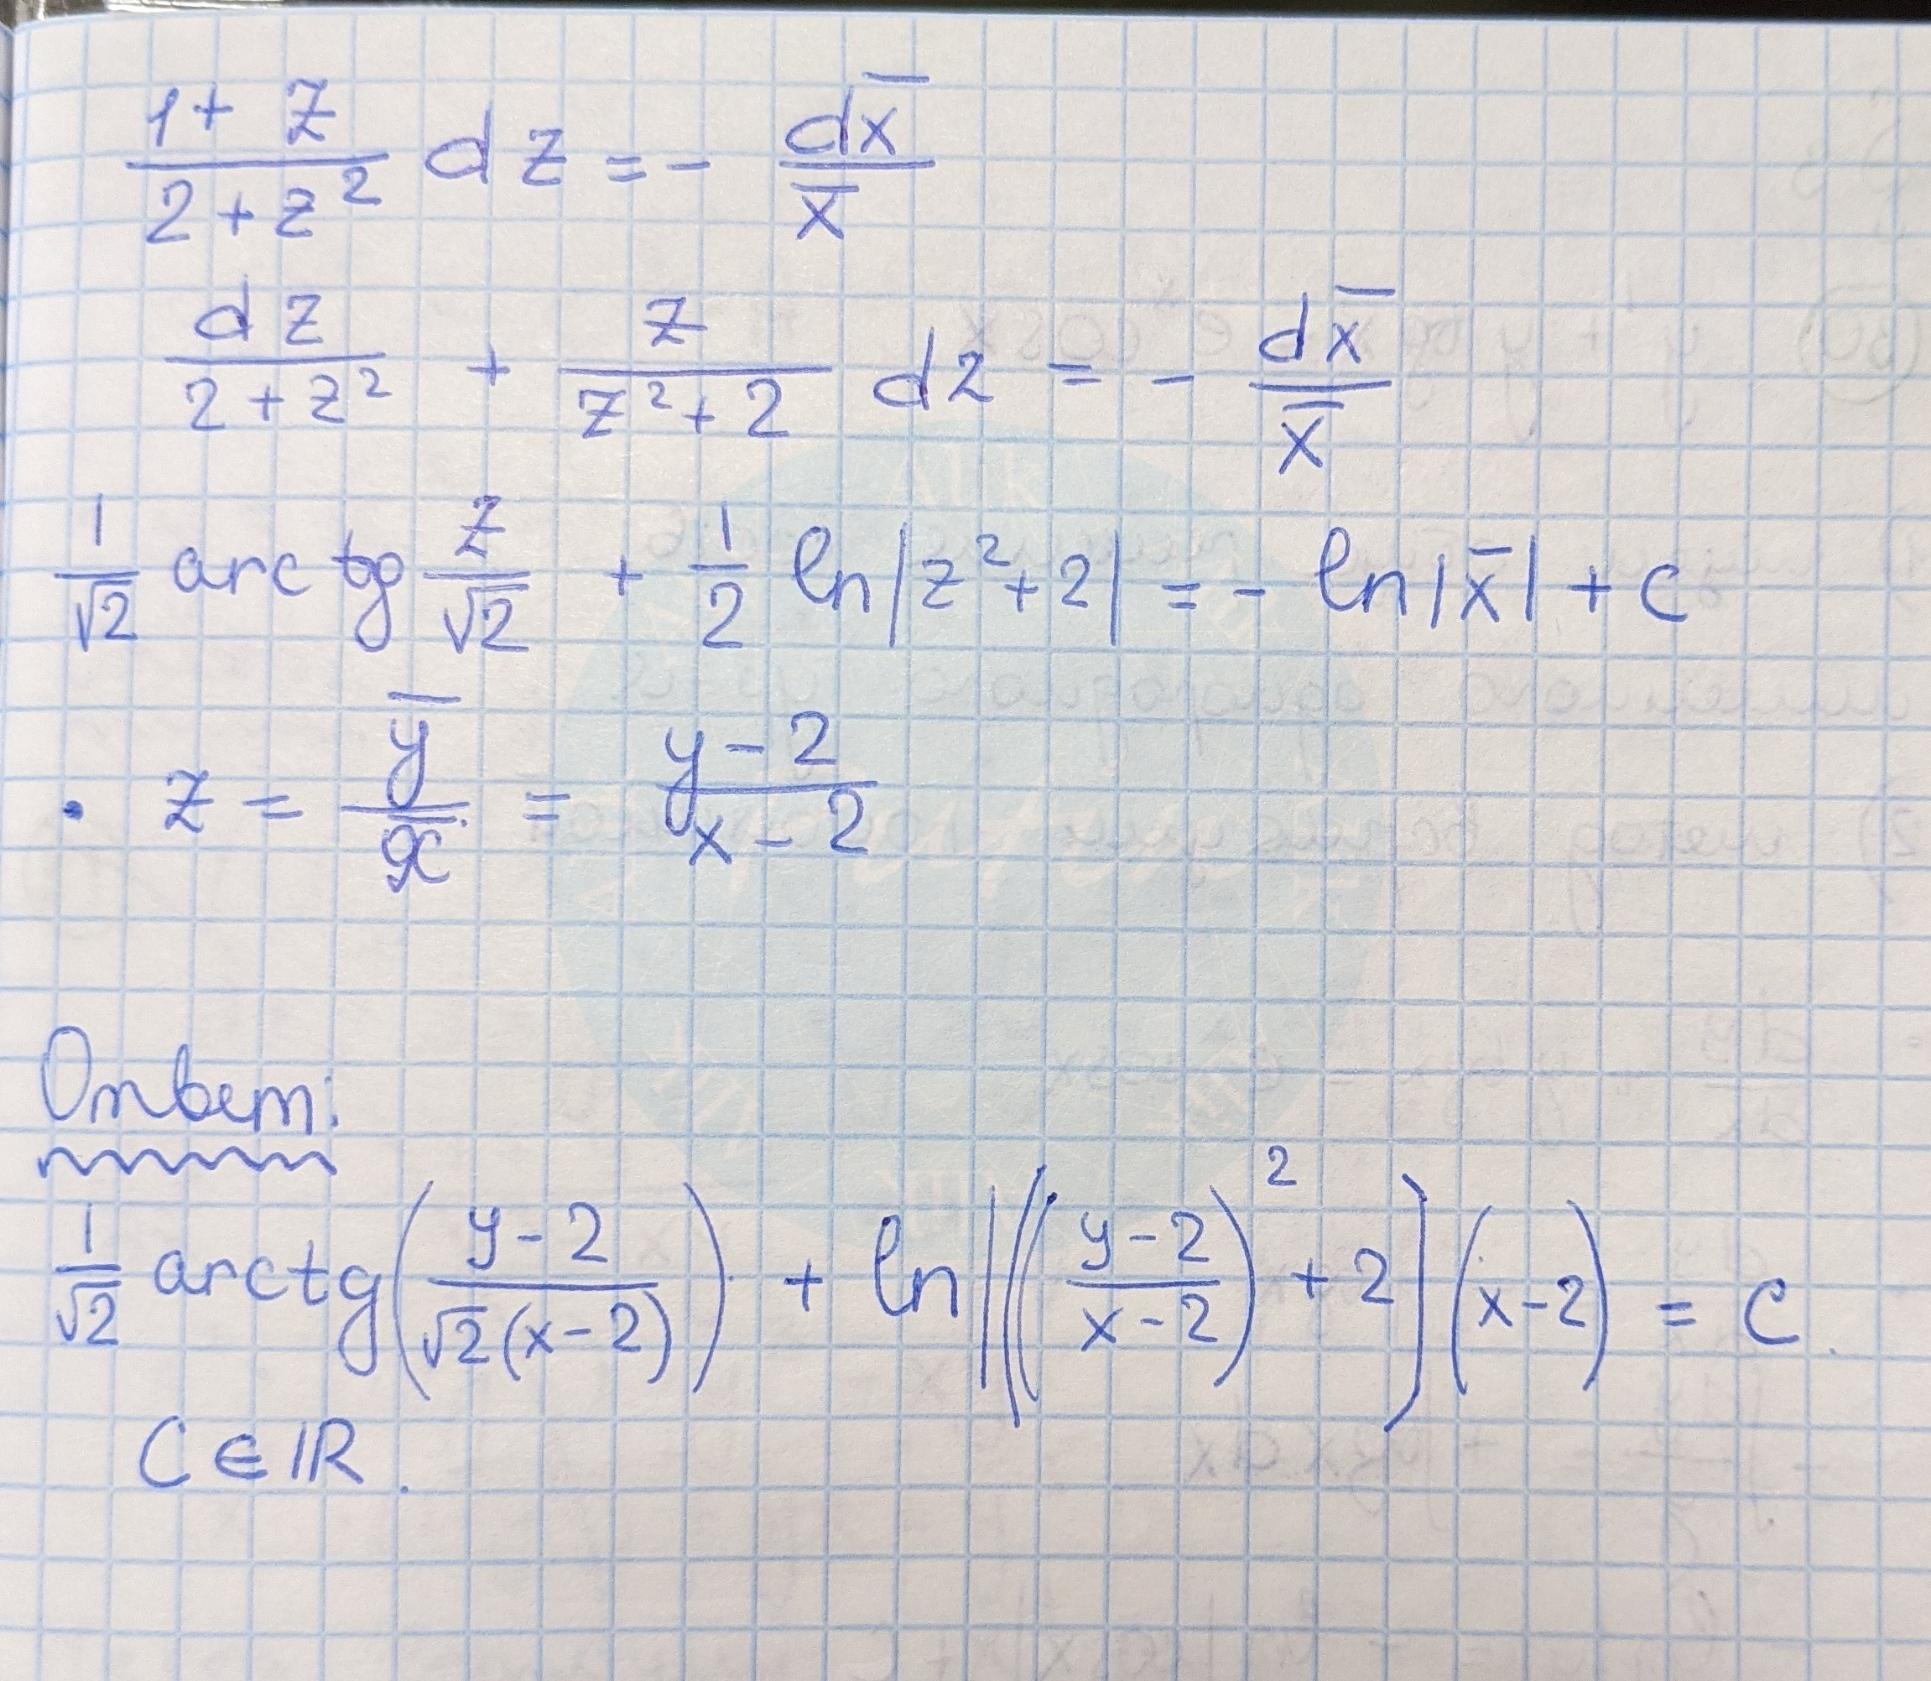 (1 + z)/(2 + z²) dz = - dx̄/x̄
dz/(2 + z²) + z/(z² + 2) dz = - dx̄/x̄
1/√2 arctg z/√2 + 1/2 ln|z² + 2| = - ln|x̄| + C
• z = ȳ/x = (y - 2)/(x - 2)
Ответ:
1/√2 arctg((y - 2)/(√2(x - 2))) + ln|(((y - 2)/(x - 2))² + 2](x - 2) = C.
C ∈ ℝ.